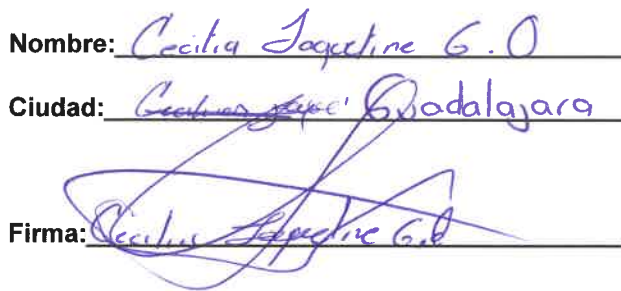 Nombre: Cecilia Jaqueline G.O
Ciudad: Guadalajara
Firma: Cecilia Jaqueline G.O